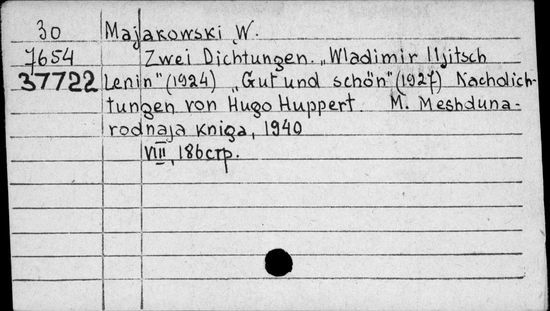 30 Majakowski W.
7654 Zwei Dichtungen. „Wladimir Iljitsch
37722 Lenin" (1924) „Gut und schön" (1927) Nachdich-
tungen von Hugo Huppert. M. Meshduna-
rodnaja kniga, 1940
VIII, 186 стр.